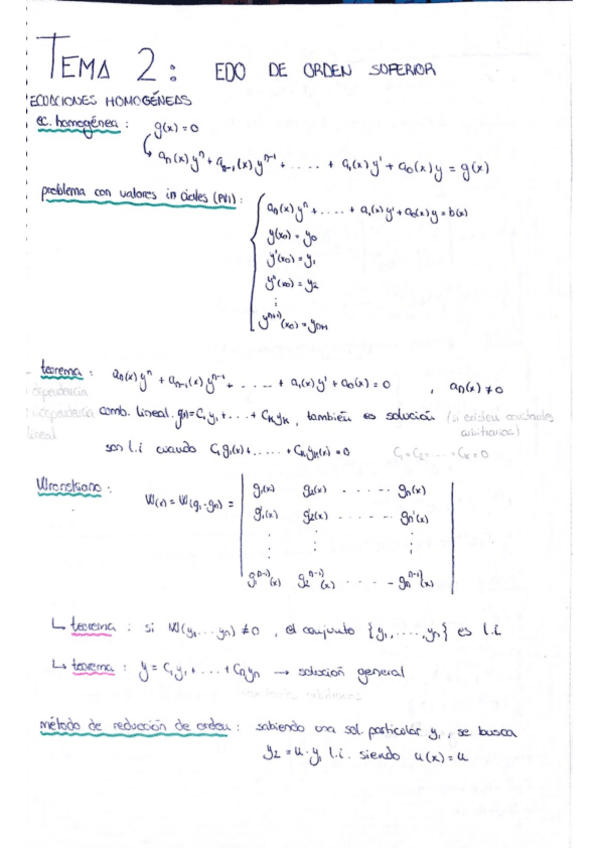 TEMA 2: EDO DE ORDEN SUPERIOR
ECUACIONES HOMOGÉNEAS
ec. homogénea: g(x) = 0
aₙ(x)yⁿ + aₙ₋₁(x)yⁿ⁻¹ + ..... + a₁(x)y' + a₀(x)y = g(x)
problema con valores iniciales (PVI):
aₙ(x)yⁿ + .... + a₁(x)y' + a₀(x)y = b(x)
y(x₀) = y₀
y'(x₀) = y₁
y''(x₀) = y₂
⋮
y⁽ⁿ⁺¹⁾(x₀) = yₙ₊₁
teorema: aₙ(x)yⁿ + aₙ₋₁(x)yⁿ⁻¹ + ..... + a₁(x)y' + a₀(x) = 0 , aₙ(x) ≠ 0
dependencia
independencia
lineal
comb. lineal. = C₁y₁ + ... + Cₖyₖ, también es solución (si existen constantes
arbitrarias)
son l.i cuando C₁y₁(x) + ..... + Cₖyₖ(x) = 0 C₁ = C₂ = ... = Cₖ = 0
Wronskiano:
W(x) = W(y₁...yₙ) =
y₁(x) y₂(x) ..... yₙ(x)
y₁'(x) y₂'(x) ..... yₙ'(x)
⋮ ⋮ ⋮
y₁⁽ⁿ⁻¹⁾(x) y₂⁽ⁿ⁻¹⁾(x) .... yₙ⁽ⁿ⁻¹⁾(x)
↳ teorema: si W(y₁...yₙ) ≠ 0, el conjunto {y₁, ...., yₙ} es l.i
↳ teorema: y = C₁y₁ + ... + Cₙyₙ → solución general
método de reducción de orden: sabiendo una sol. particular y₁, se busca
y₂ = u · y₁ l.i. siendo u(x) = u